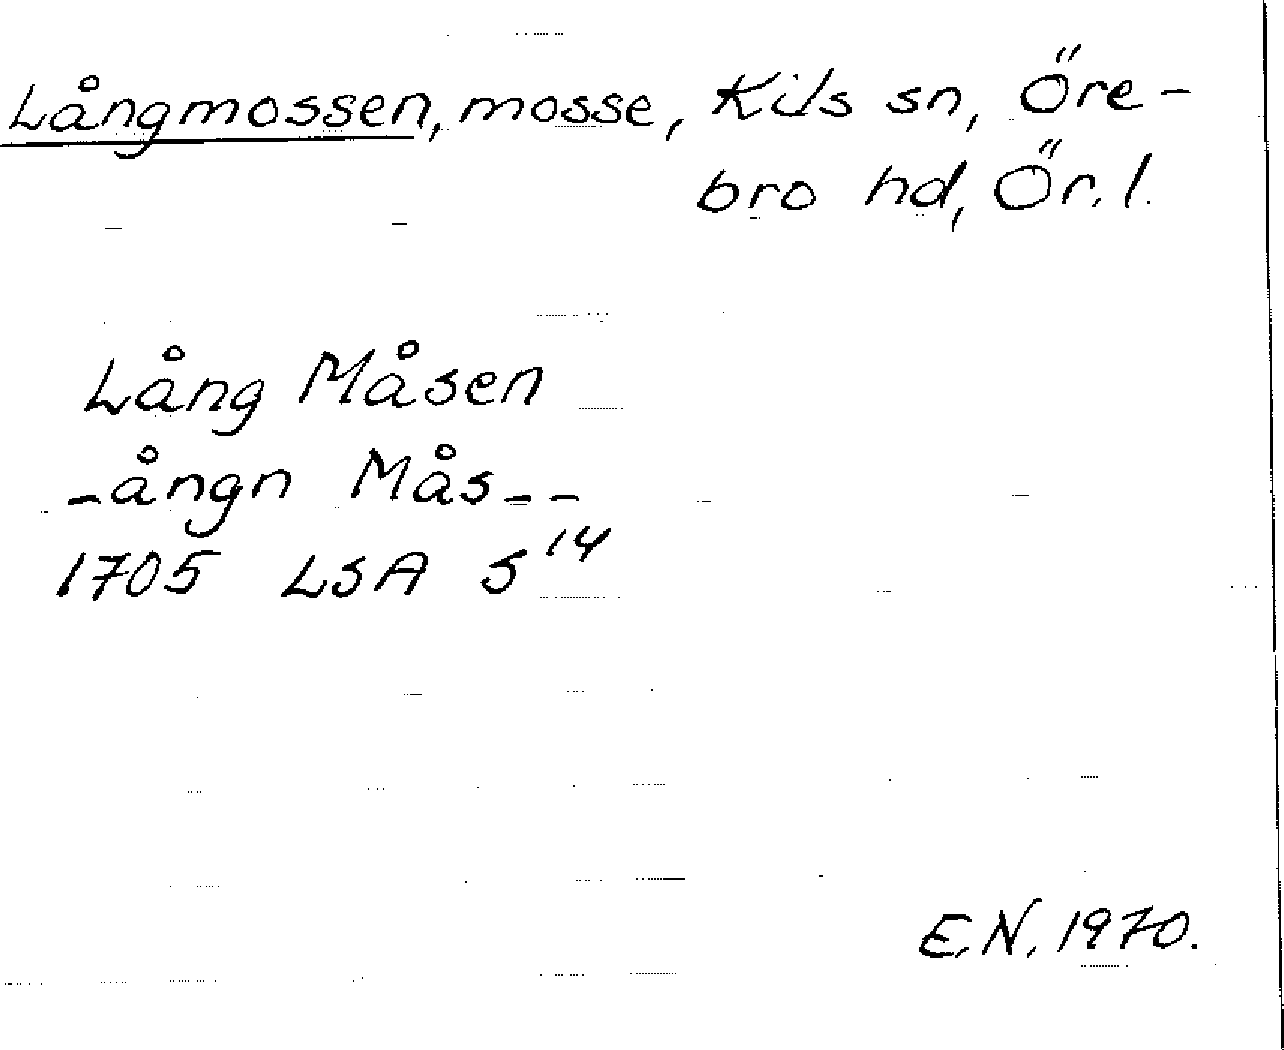 Långmossen, mosse, Kils sn, Öre-
bro hd, Ör. l.
Lång Måsen
-ångn Mås--
1705 LSA S¹⁴
E.N. 1970.